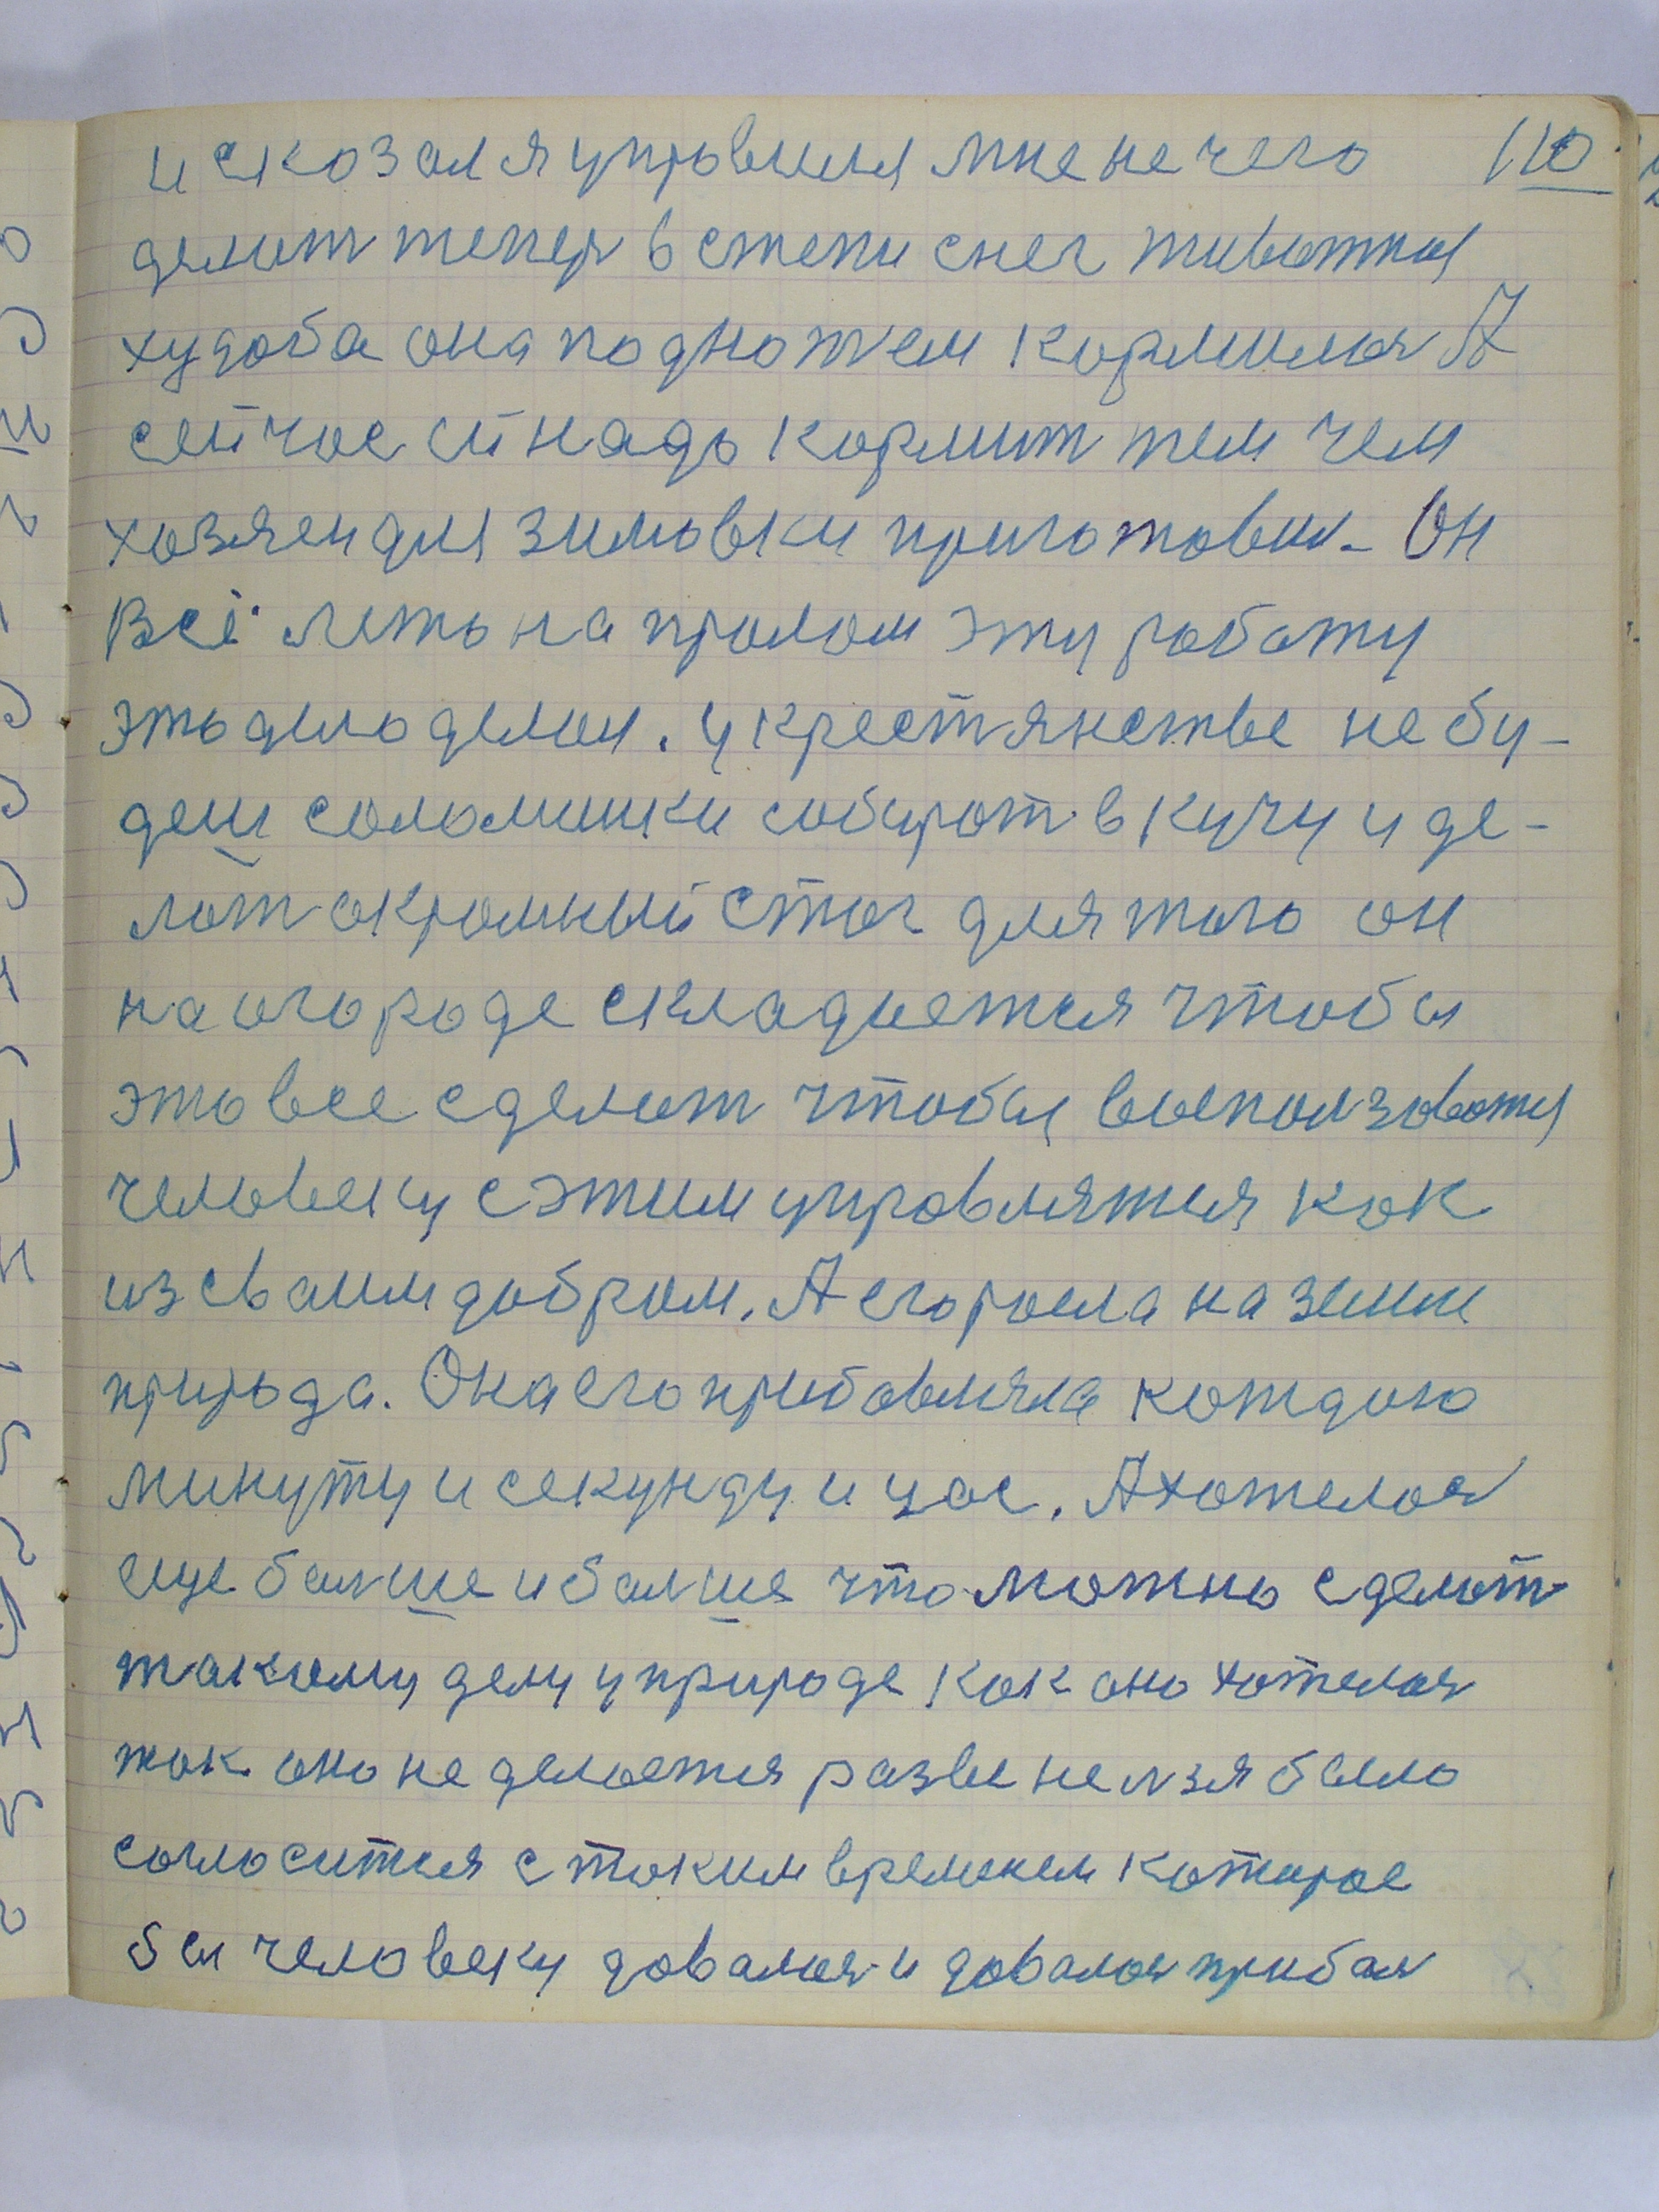 и сказал я управился мне не чего 110
делат тепер в степи снег животная
худоба она подножем кормилася А
сейчас ей надо кормит тем чем
хозяен для зимовки приготовил – Он
всё лето на пролом эту работу
это дело делал. у крестянстве не бу-
деш соломинки собират в кучу и де-
лат акромный стог для того он
на огороде складается чтобы
это все сделат чтобы воспользоватся
человеку с этим управлятися как
из сваим добром. А его расла на земли
природа. Она его прибавляла каждою
минуту и секунду и час. А хотелося
еще балше и балше что можно сделат
такому делу у природе как оно хотелося
так оно не делается разве нелзя было
согласится с таким временем каторое
бы человеку давалося и давалося прибал